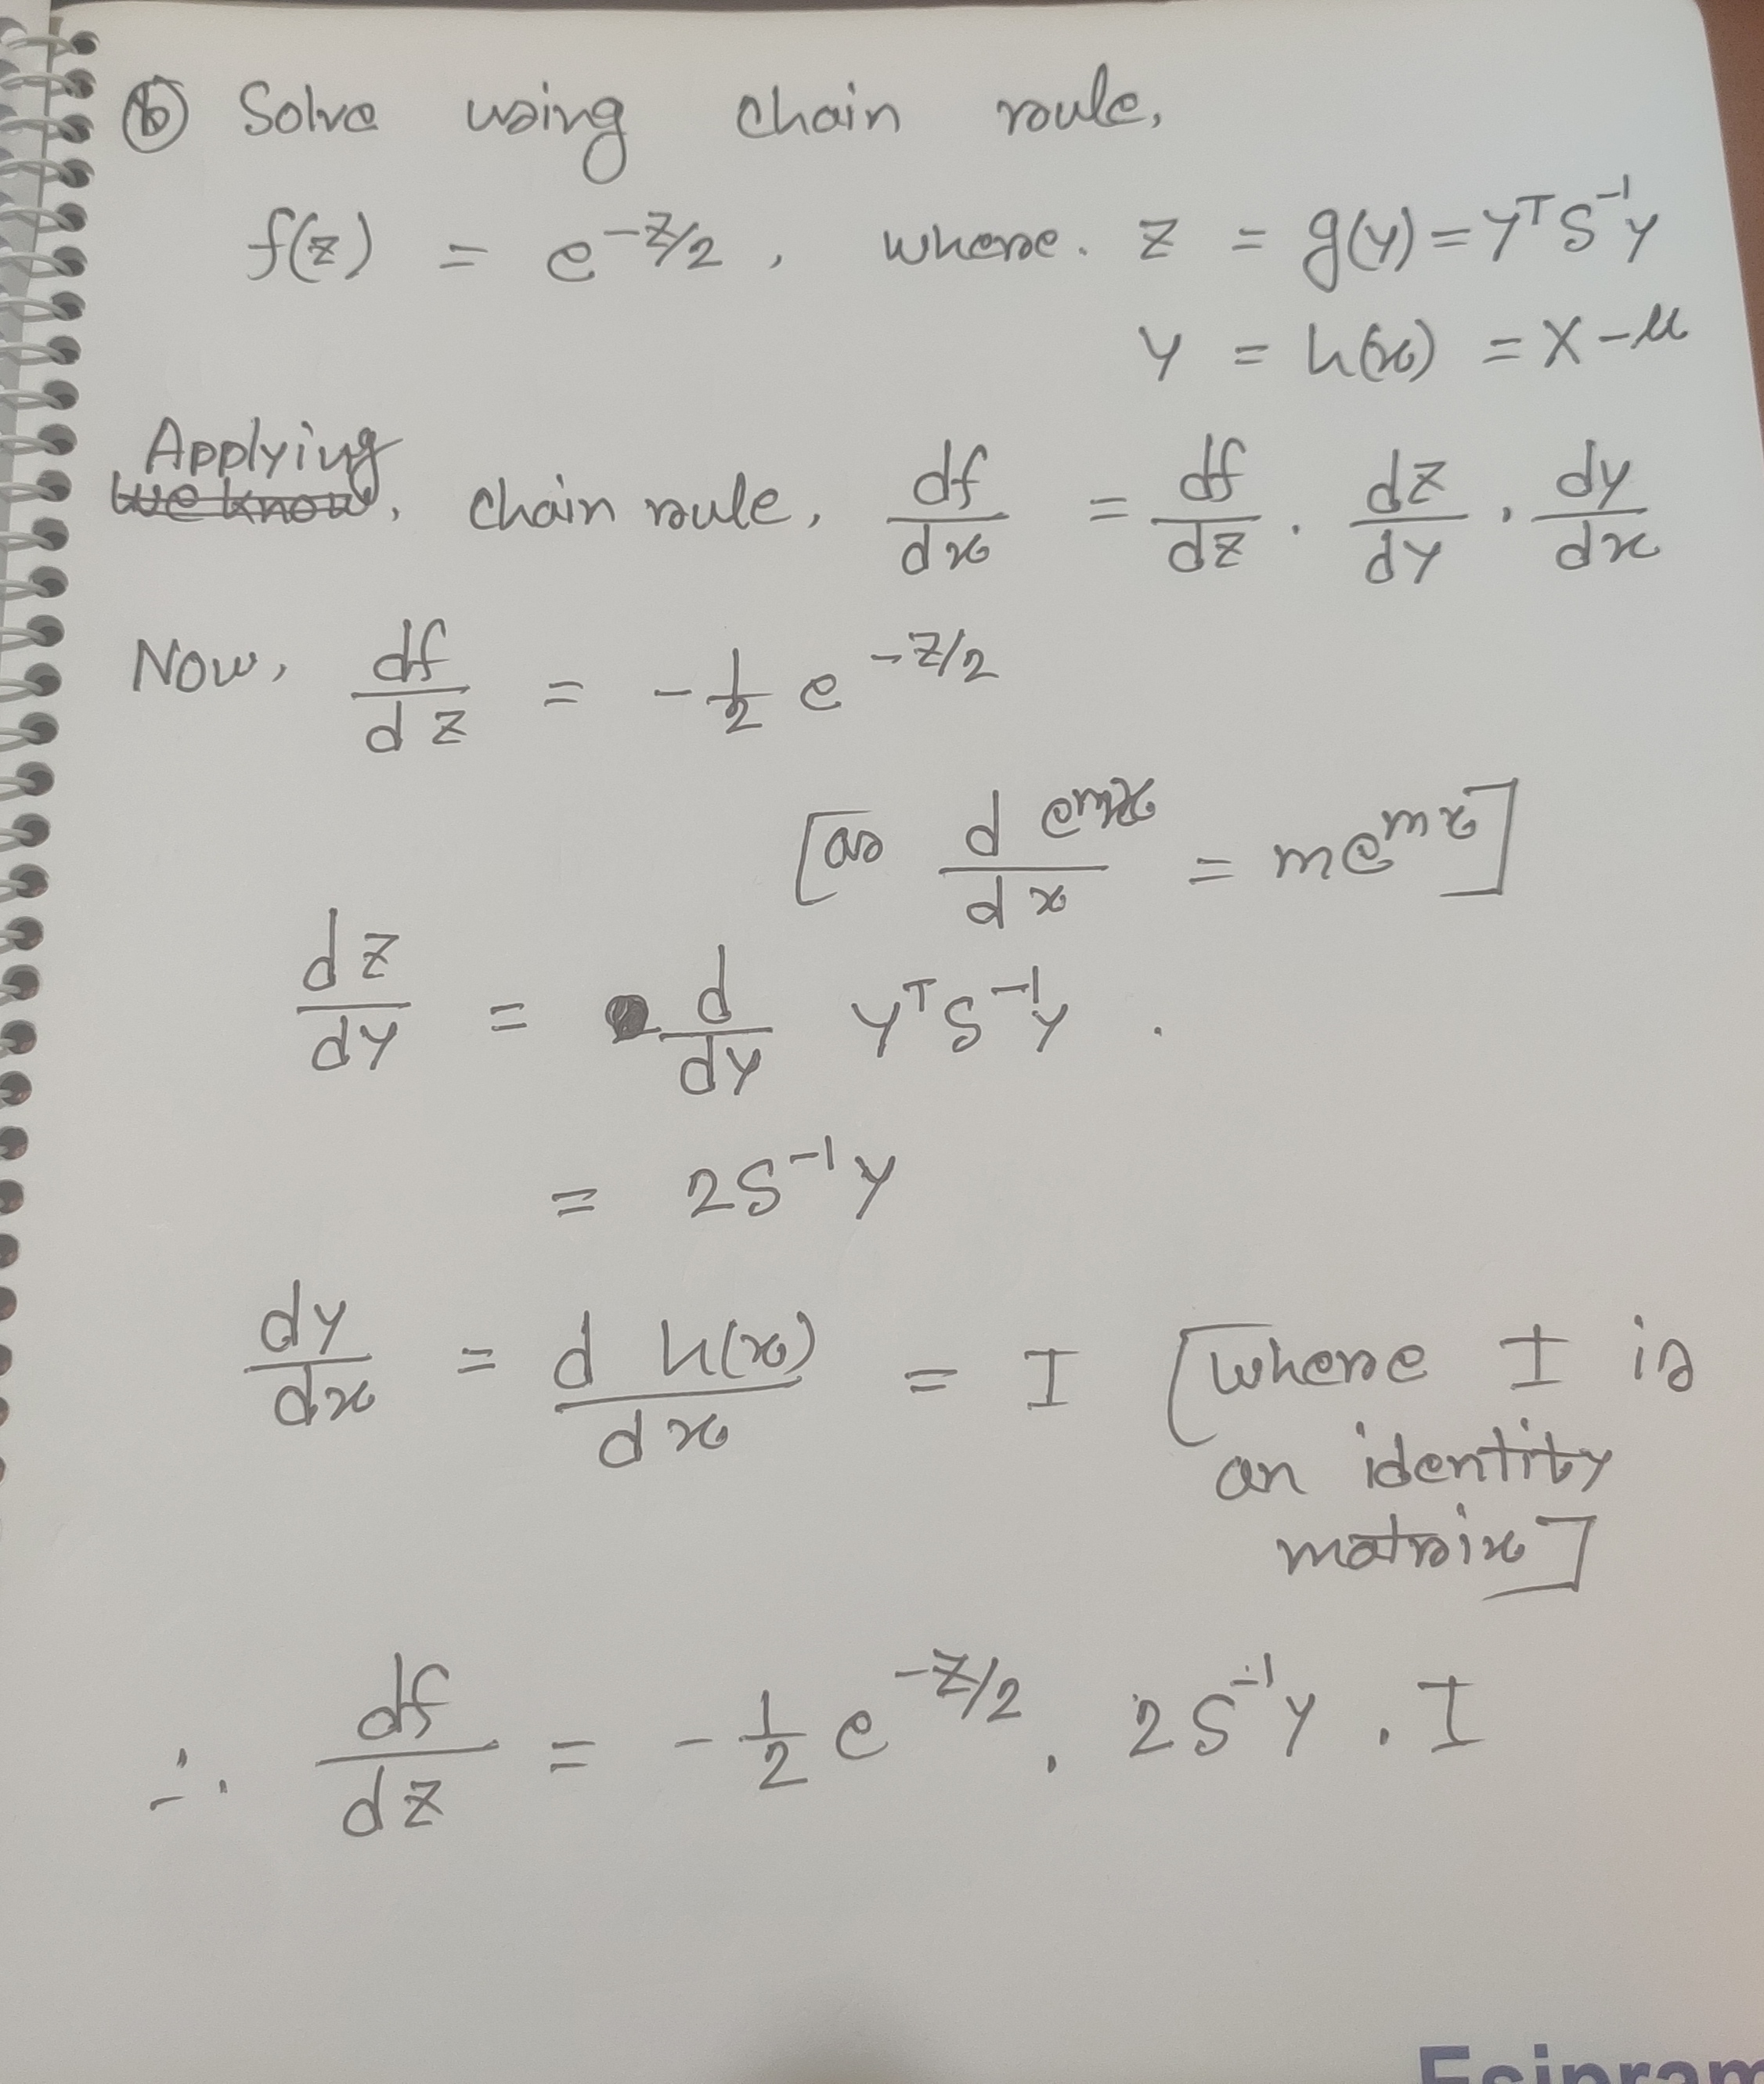 (b) Solve using chain roule,
f(z) = e^{-z/2}, where. z = g(y) = y^T S^{-1} y
y = h(x) = x - μ
Applying chain roule, df/dx = df/dz . dz/dy . dy/dx
Now, df/dz = -1/2 e^{-z/2}
[as d e^{mx}/dx = m e^{mx}]
dz/dy = d/dy y^T S^{-1} y .
= 2S^{-1}y
dy/dx = d h(x)/dx = I [where I is
an identity
matrix]
∴ df/dz = -1/2 e^{-z/2} . 2S^{-1}y . I